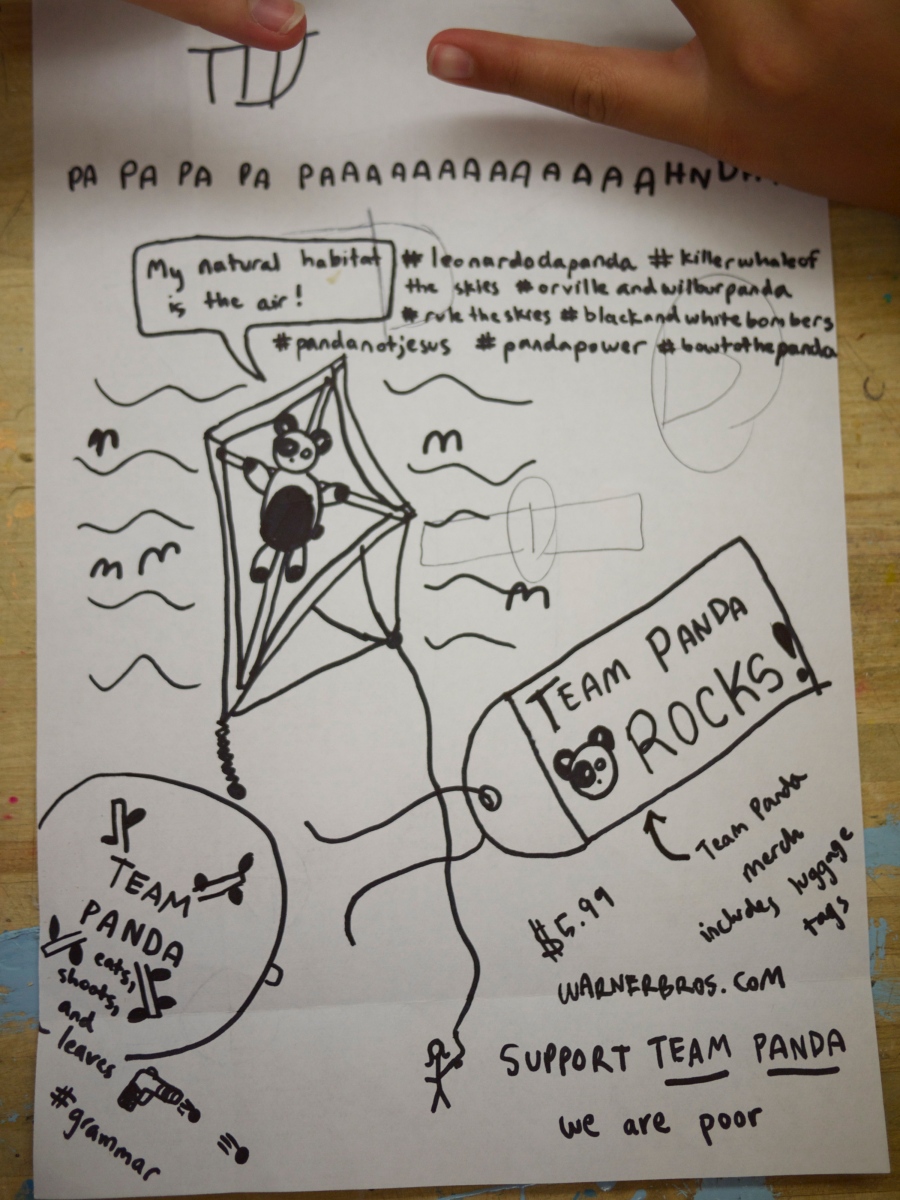 PA PA PA PA PAAAAAAAAAAAAAAHNDA
My natural habitat
is the air!
#leonardodapanda #killerwhaleof
the skies #orvilleandwilburpanda
#ruletheskies #blackandwhitebombers
#pandanotjesus #pandapower #bowtothepanda
TEAM PANDA
ROCKS!
Team Panda
merch
includes luggage
tags
$5.99
WARNERBROS.COM
SUPPORT TEAM PANDA
we are poor
TEAM
PANDA
eats,
shoots,
and
leaves
#grammar